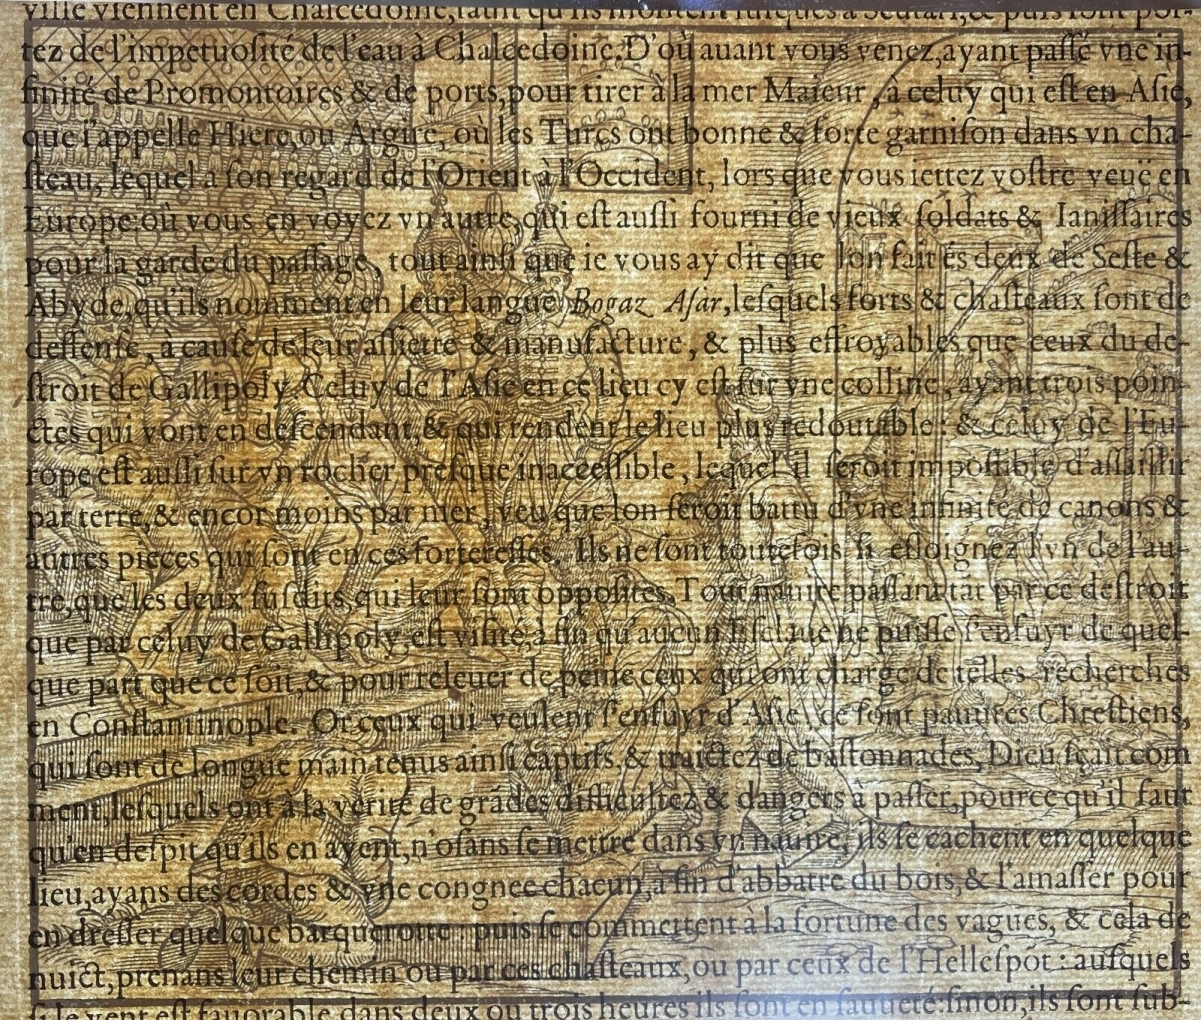 ville viennent en Chalcedoine, faut qu'ils montent iusques à Scutari, & puis sont por-
tez de l'impetuosité de l'eau à Chalcedoine. D'où auant vous venez, ayant passé vne in-
finité de Promontoires & de ports, pour tirer à la mer Maieur, à celuy qui est en Asie,
que i'appelle Hiere, ou Argire, où les Turcs ont bonne & forte garnison dans vn cha-
steau, lequel a son regard de l'Orient à l'Occident, lors que vous iettez vostre veuë en
Europe: où vous en voyez vn autre, qui est aussi fourni de vieux soldats & Ianissaires
pour la garde du passage, tout ainsi que ie vous ay dit que lon fait és deux de Seste &
Abyde, qu'ils nomment en leur langue Bogaz Asar, lesquels forts & chasteaux sont de
deffense, à cause de leur assiette & manufacture, & plus effroyables que ceux du de-
stroit de Gallipoly. Celuy de l'Asie en ce lieu cy est sur vne colline, ayant trois poin-
ctes qui vont en descendant, & qui rendent le lieu plus redoutable: & celuy de l'Eu-
rope est aussi sur vn rocher presque inaccessible, lequel il seroit impossible d'assaillir
par terre, & encor moins par mer, veu que lon seroit battu d'vne infinité de canons &
autres pieces qui sont en ces forteresses. Ils ne sont toutefois si esloignez l'vn de l'au-
tre, que les deux susdits, qui leur sont opposites. Tout nauire passant tāt par ce destroit
que par celuy de Gallipoly, est visité, à fin qu'aucun Esclaue ne puisse s'enfuyr de quel-
que part que ce soit, & pour releuer de peine ceux qui ont charge de telles recherches
en Constantinople. Or ceux qui veulent s'enfuyr d'Asie, ce sont pauures Chrestiens,
qui sont de longue main tenus ainsi captifs, & traictez de bastonnades, Dieu sçait com
ment, lesquels ont à la verité de grādes difficultez & dangers à passer, pource qu'il faut
qu'en despit qu'ils en ayent, n'osans se mettre dans vn nauire, ils se cachent en quelque
lieu, ayans des cordes & vne congnee chacun, à fin d'abbatre du bois, & l'amasser pour
en dresser quelque barquerotte: puis se commettent à la fortune des vagues, & cela de
nuict, prenans leur chemin ou par ces chasteaux, ou par ceux de l'Hellespōt: ausquels
si le vent est fauorable dans deux ou trois heures ils sont en sauueté: sinon, ils sont sub-